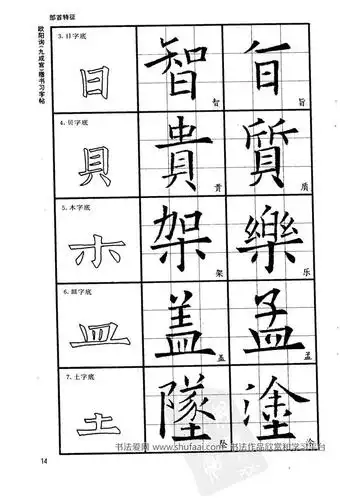 部首特征
欧阳询·九成宫·楷书习字帖
3. 日字底
日
智
智
旨
旨
4. 贝字底
貝
貴
贵
質
质
5. 木字底
木
架
架
樂
乐
6. 皿字底
皿
蓋
盖
孟
孟
7. 土字底
土
墜
塗
书法爱网 www.shufaai.com 书法作品欣赏和学习平台
14